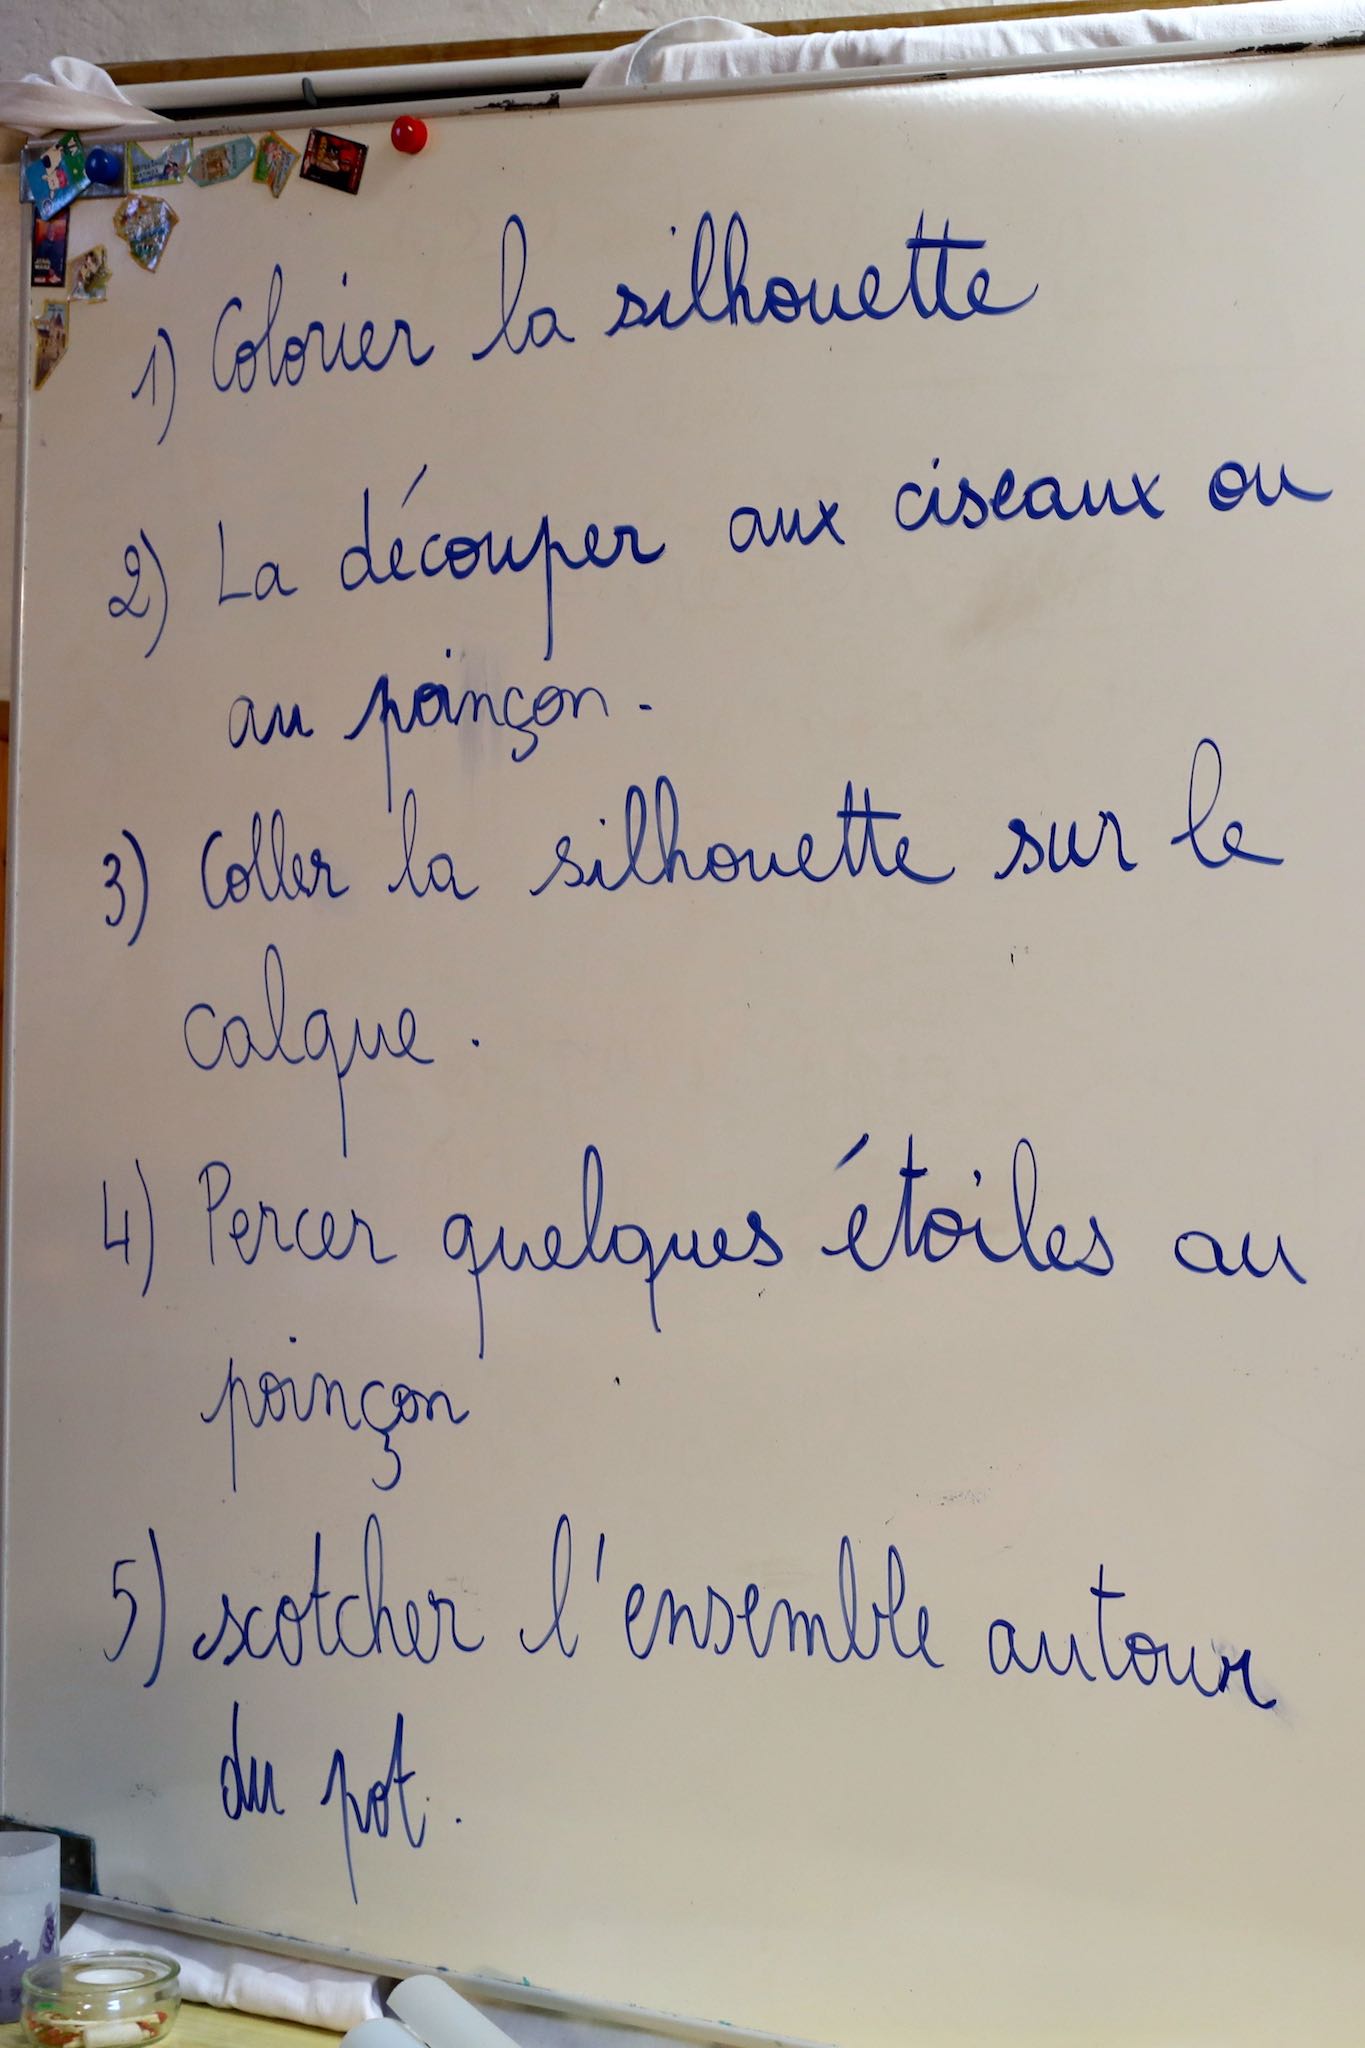 1) Colorier la silhouette
2) La découper aux ciseaux ou
au poinçon.
3) Coller la silhouette sur le
calque.
4) Percer quelques étoiles au
poinçon
5) scotcher l'ensemble autour
du pot.